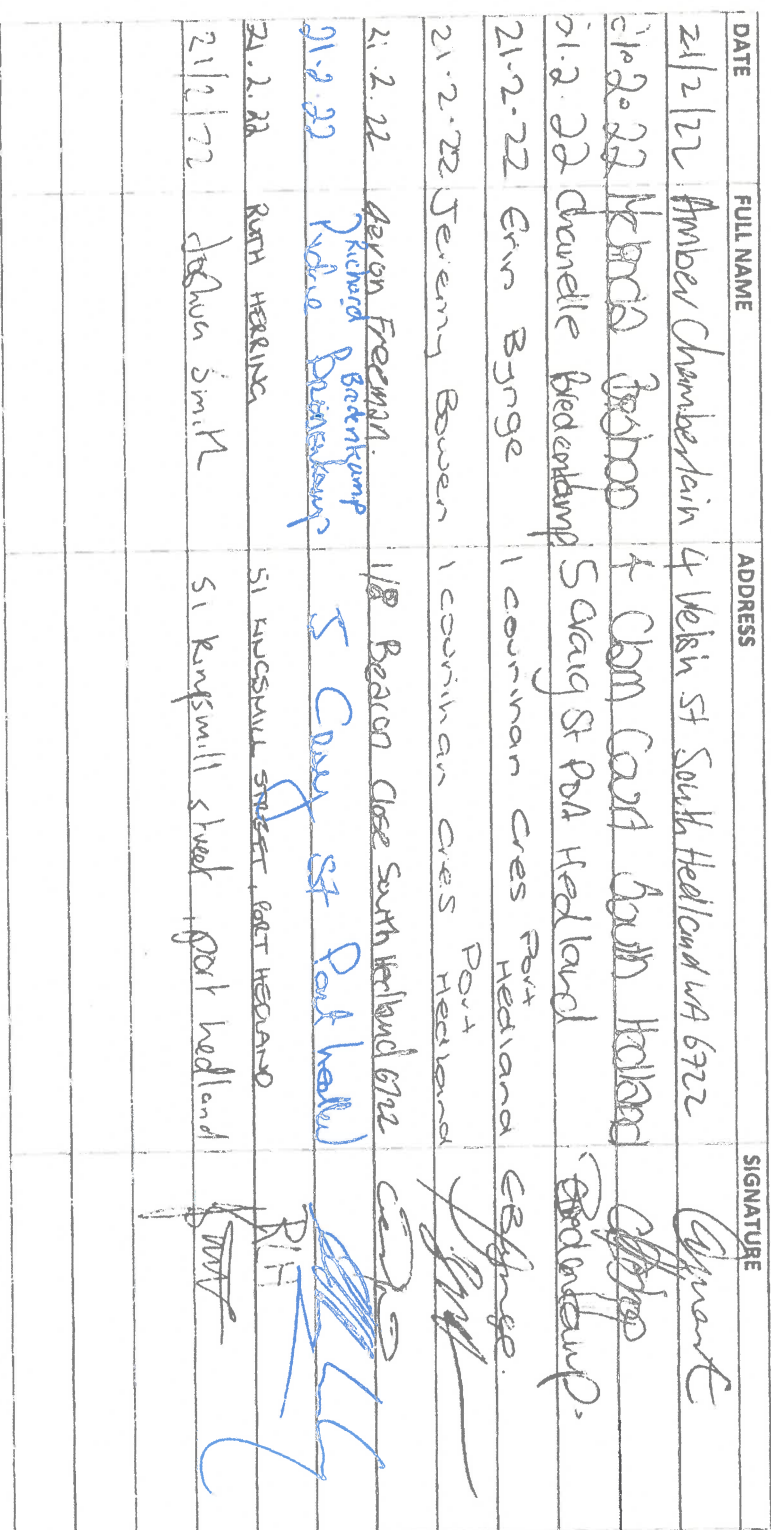 DATE FULL NAME ADDRESS SIGNATURE
21/2/22 Amber Chamberlain 4 Welsh St South Hedland WA 6722
21.2.22 4 Clam Court South Hedland
21.2.22 Chanelle Bredenkamp 5 Craig St Port Hedland Bredenkamp.
21.2.22 Erin Byrge 1 counihan Cres Port Hedland EByrge.
21.2.22 Jeremy Bowen 1 counihan Cres Port Hedland
21.2.22 Freeman. 1/8 Beacon Close South Hedland 6722
21.2.22 Richard Bredenkamp 5 St Port hedland
21.2.22 RUTH HERRING 51 KINGSMILL STREET, PORT HEDLAND RLH
21/2/22 Joshua Smith 51 kingsmill street, port hedland